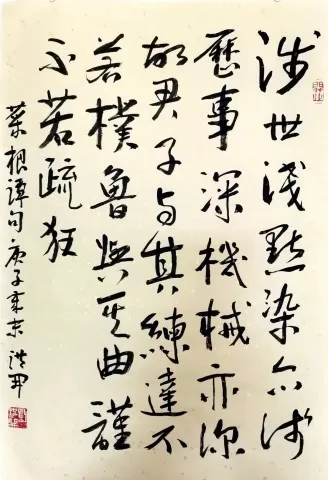 涉世浅點染亦浅
歷事深機械亦深
故君子与其練達不
若樸魯與其曲謹
不若疏狂
菜根譚句庚子